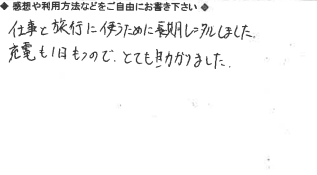 ◆ 感想や利用方法などをご自由にお書き下さい ◆
仕事と旅行に使うために長期レンタルしました。
充電も1日もつので、とても助かりました。